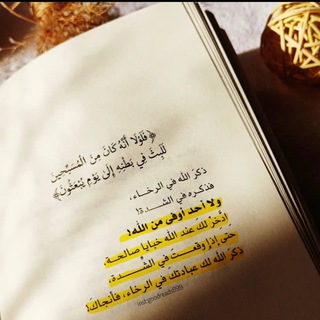 ﴿فَلَوْلَا أَنَّهُ كَانَ مِنَ الْمُسَبِّحِينَ
لَلَبِثَ فِي بَطْنِهِ إِلَىٰ يَوْمِ يُبْعَثُونَ﴾
ذكرَ الله في الرخاء،
فذكره في الشدة!
ولا أحد أوفى من الله!
ادّخِر لكَ عند الله خبايا صالحة،
حتى إذا وقعتَ في الشّدة،
ذكرَ الله لك عبادتكَ في الرخاء، فأنجاكَ!